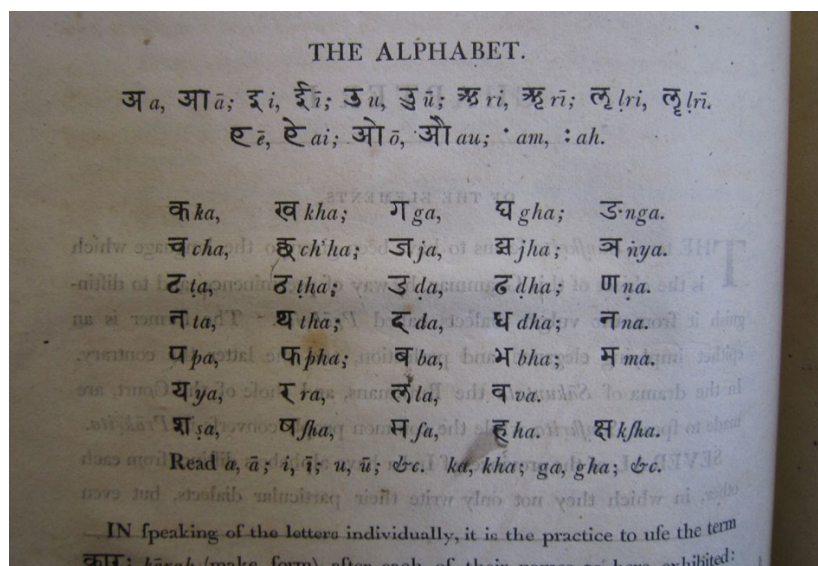 THE ALPHABET.
अ a, आ ā; इ i, ई ī; उ u, ऊ ū; ऋ ri, ॠ rī; ऌ ḷri, ॡ ḷrī.
ए ē, ऐ ai; ओ ō, औ au; ं am, ः ah.
क ka, ख kha; ग ga, घ gha; ङ nga.
च cha, छ ch'ha; ज ja, झ jha; ञ ṅya.
ट ṭa, ठ ṭha; ड ḍa, ढ ḍha; ण ṇa.
त ta, थ tha; द da, ध dha; न na.
प pa, फ pha; ब ba, भ bha; म ma.
य ya, र ra, ल la, व va.
श ṣa, ष ſha, स ſa, ह ha. क्ष kſha.
Read a, ā; i, ī; u, ū; &c. ka, kha; ga, gha; &c.
IN ſpeaking of the letters individually, it is the practice to uſe the term
कारः kārah (make, form) after each of their names as here exhibited: